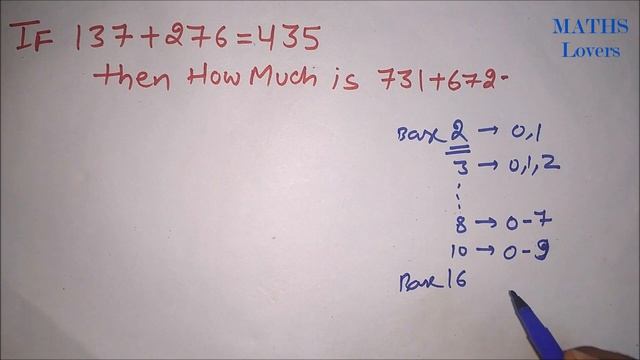 IF 137+276=435
then How Much is 731+672-
MATHS
Lovers
Base 2 → 0,1
3 → 0,1,2
8 → 0-7
10 → 0-9
Base 16